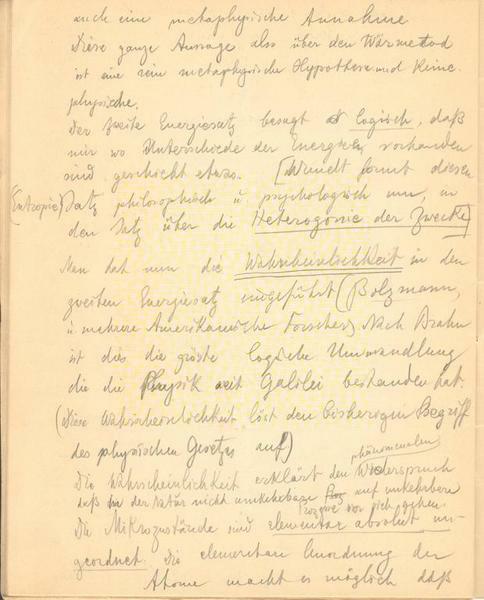 auch eine metaphysische Annahme
Diese ganze Aussage also über den Wärmetod
ist eine rein metaphysische Hypothese und keine
physische.
Der zweite Energiesatz besagt logisch, daß
nur wo Unterschiede der Energien vorhanden
sind geschieht etwas. [Wundt formt diesen
(Entropie) Satz philosophisch u psychologisch um, in
den Satz über die Heterogonie der Zwecke]
Man hat nun die Wahrscheinlichkeit in den
zweiten Energiesatz eingeführt (Bolzmann,
u mehrere Amerikanische Forscher) Nach
ist dies die gröste logische Umwandlung
die die Physik seit Galilei bestanden hat.
(Diese Wahrscheinlichkeit löst den bisherigen Begriff
des physischen Gesetzes auf)
phänomenalen
Die Wahrscheinlichkeit erklärt den Widerspruch
daß in der Natur nicht umkehrbare auf umkehrbare
vor sich gehen.
Die Mikrozustände sind elementar absolut un-
geordnet. Die elementare Unordnung der
Atome macht es möglich daß